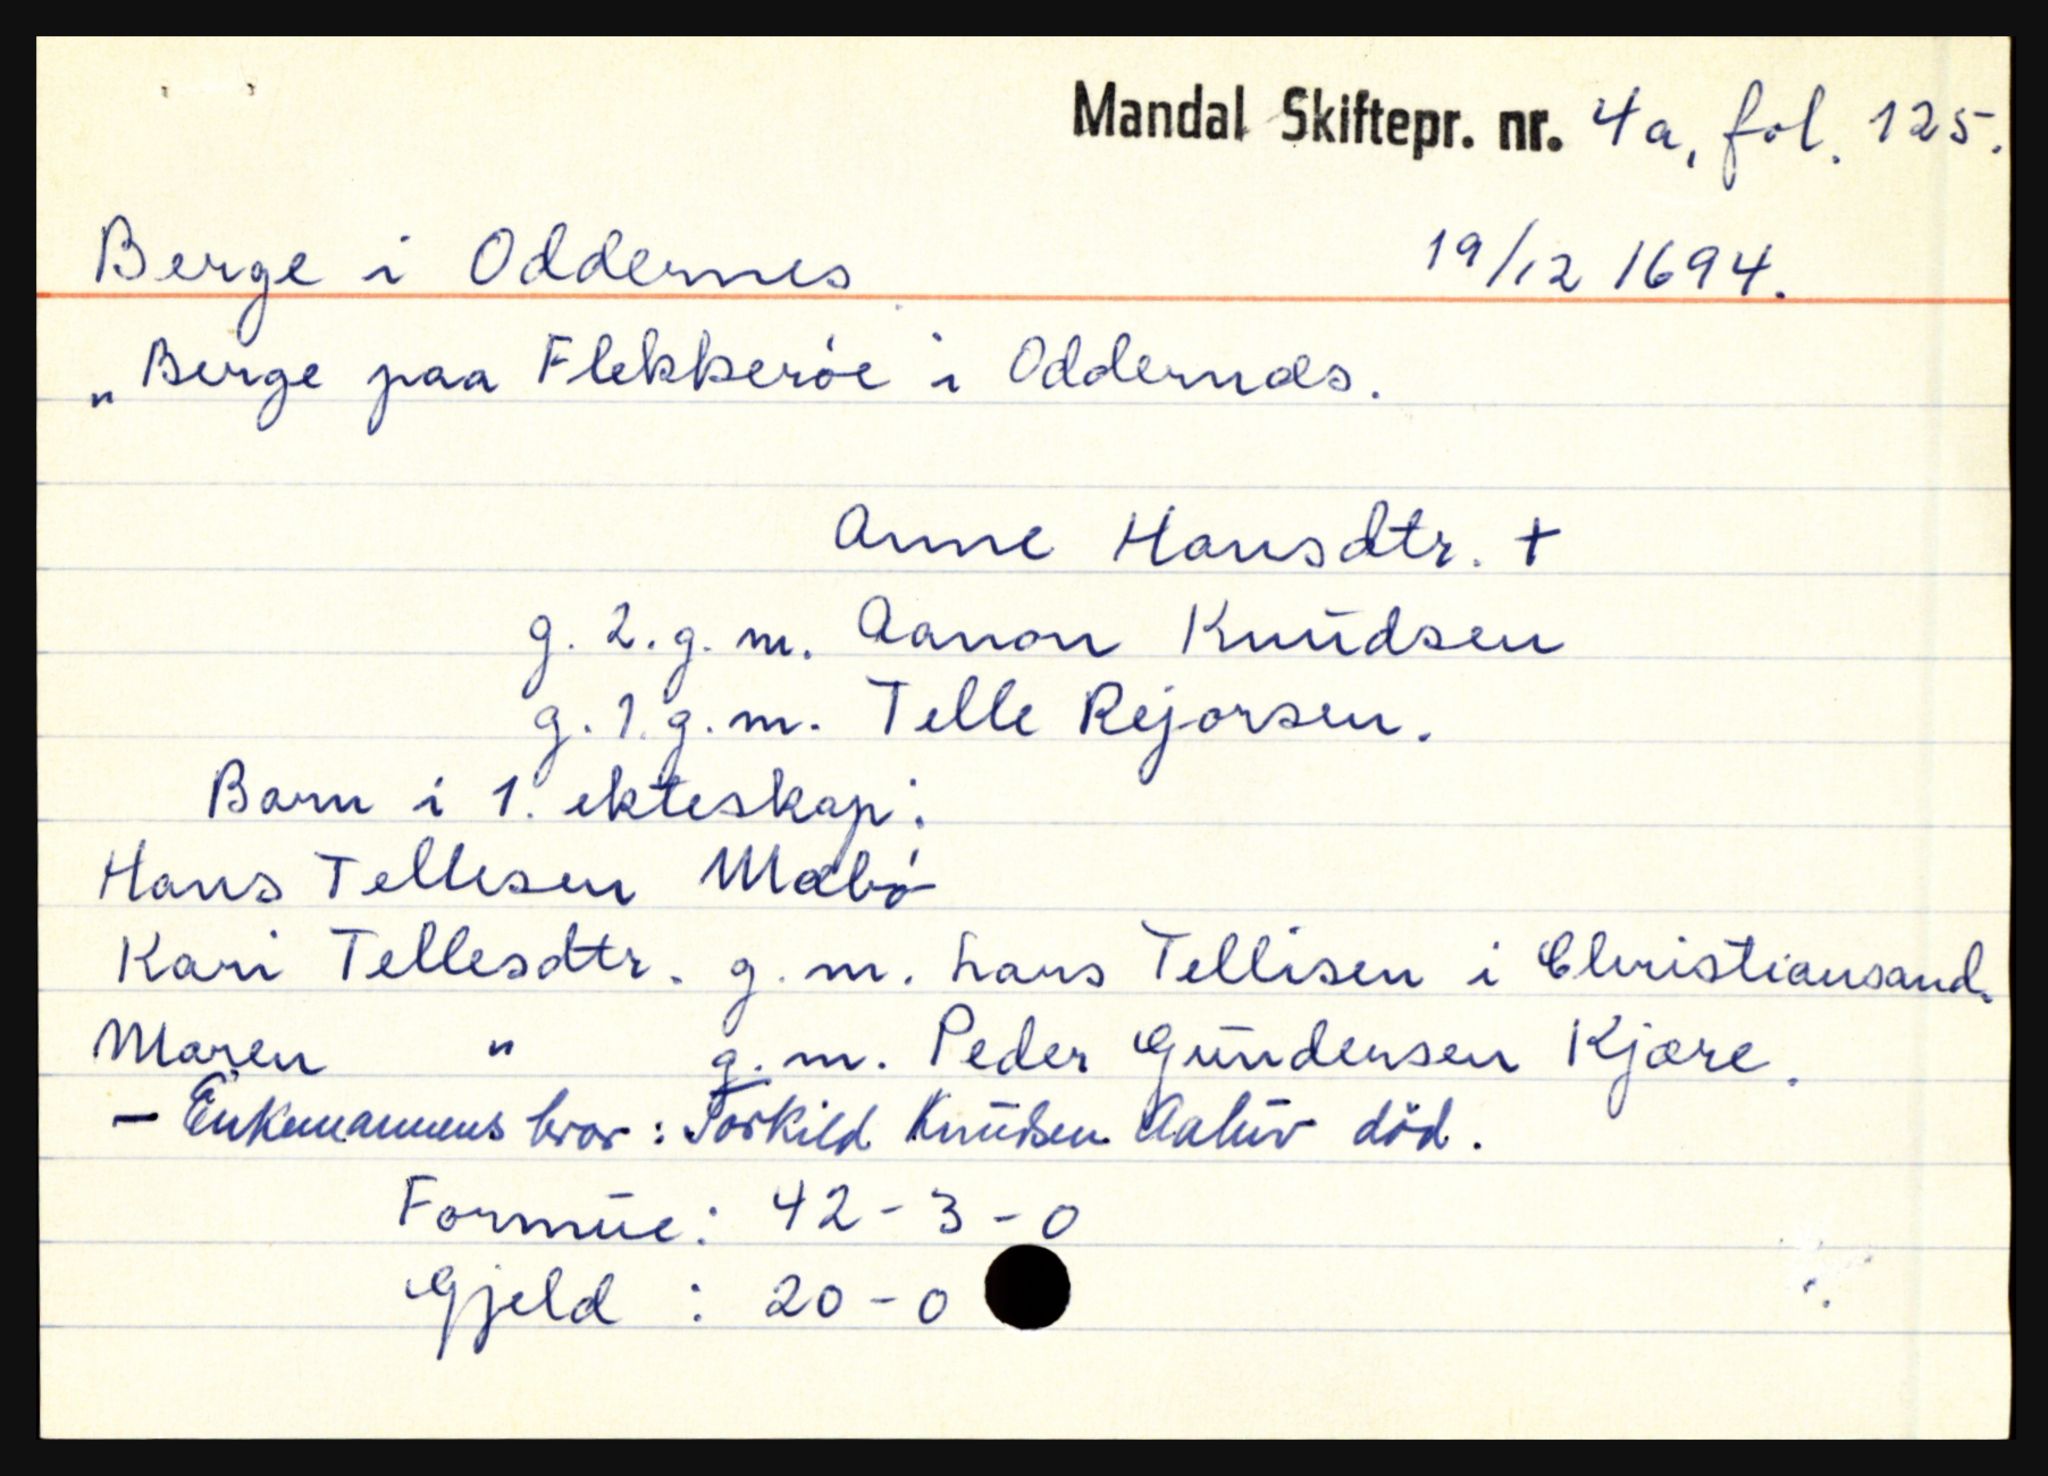 Mandal Skiftepr. nr. 4a, fol. 125.
Berge i Oddernes 19/12 1694.
„Berge paa Flekkerøe i Oddernæs.
Anne Hansdtr. +
g. 2. g. m. Aanon Knudsen
g. 1. g. m. Telle Rejorsen.
Barn i 1. ekteskap:
Hans Tellesen Mæbø
Kari Tellesdtr. g. m. Lars Tellisen i Christiansand.
Maren " g. m. Peder Gundersen Kjære.
- Enkemannens bror: Torkild Knudsen død.
Formue: 42-3-0
Gjeld : 20-0